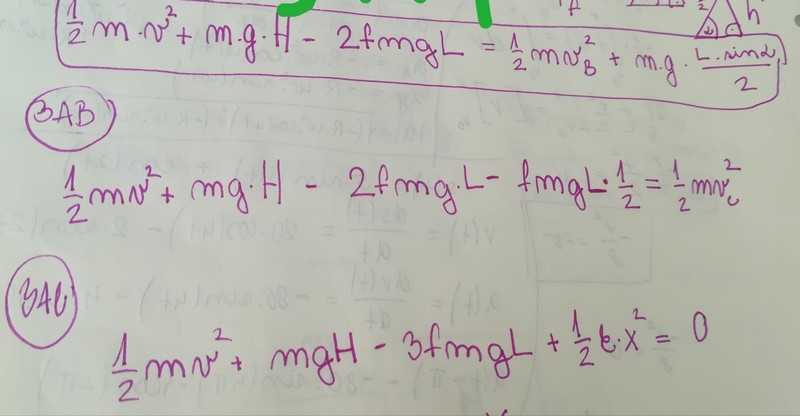 1/2 m·v² + m·g·H − 2fmgL = 1/2 mv_B² + m·g· L·sinα/2
h
ЗАВ)
1/2 mv² + mg·H − 2fmg·L − fmgL·1/2 = 1/2 mv_c²
ЗАС)
1/2 mv² + mgH − 3fmgL + 1/2 k·x² = 0